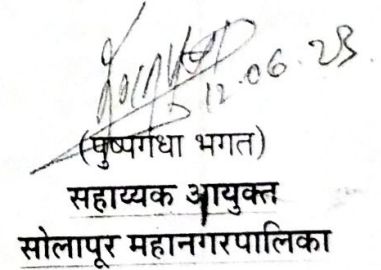 12.06.23.
(पुष्पगंधा भगत)
सहाय्यक आयुक्त
सोलापूर महानगरपालिका